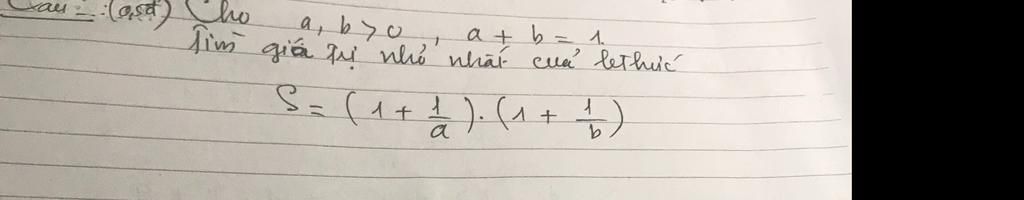 Câu : (0,5đ) Cho a, b > 0 , a + b = 1.
Tìm giá trị nhỏ nhất của bthức
S = (1 + 1/a) . (1 + 1/b)